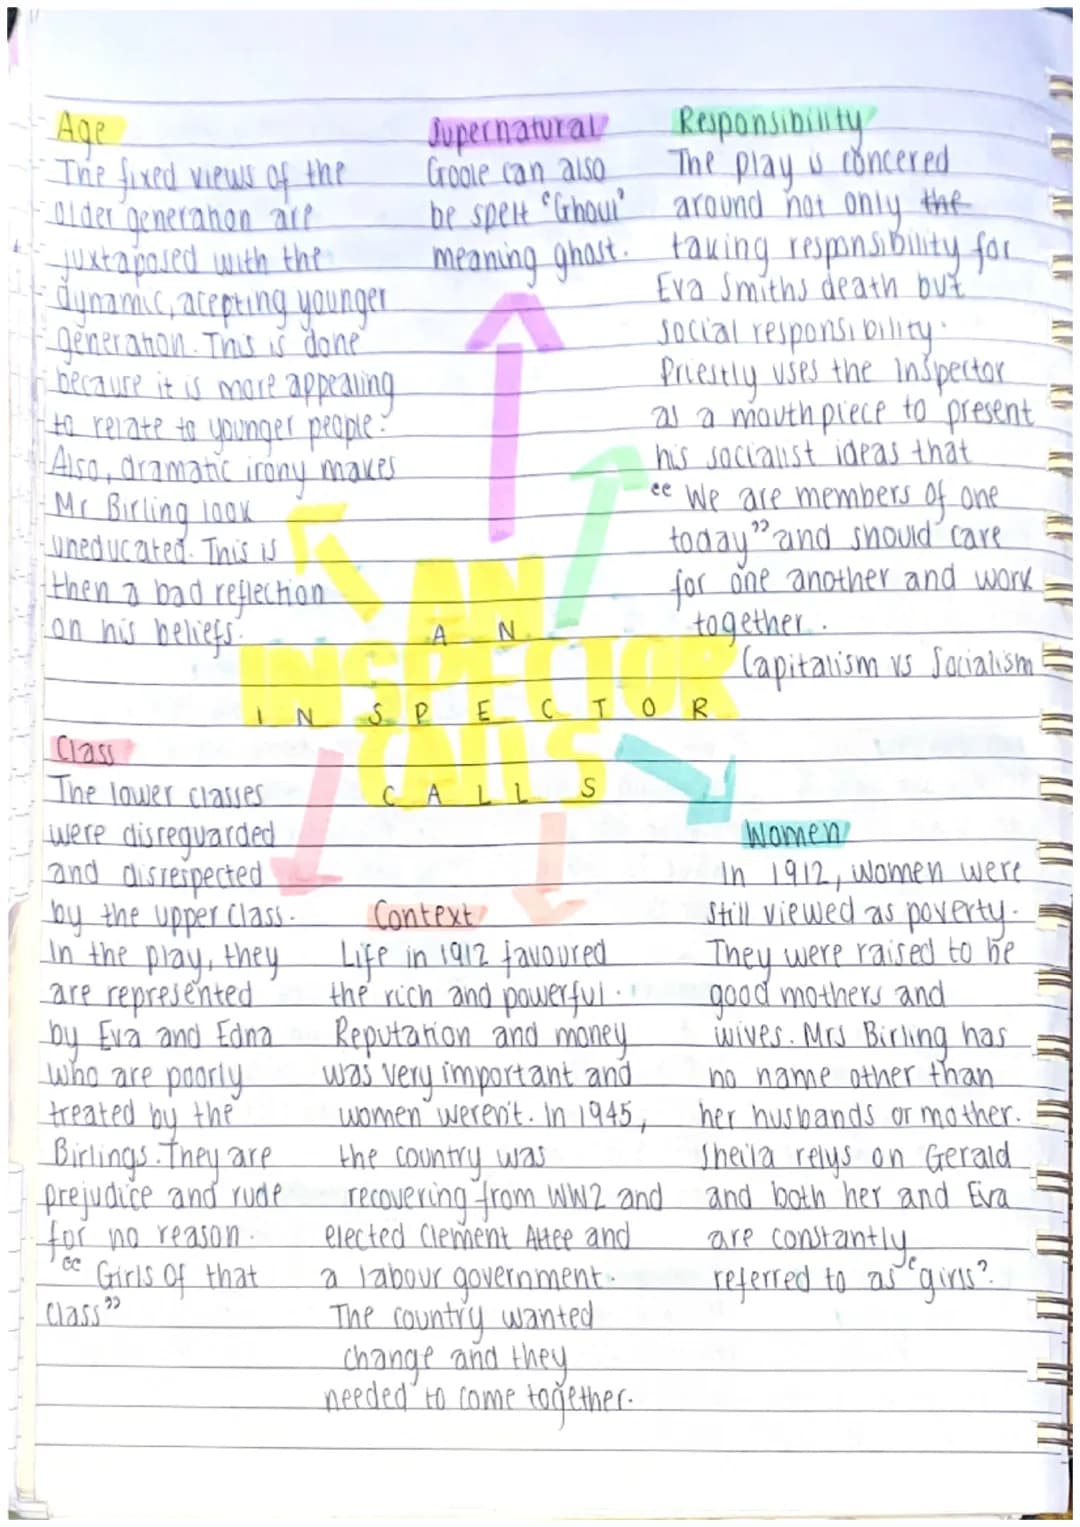 Age
The fixed views of the
older generation are
juxtaposed with the
dynamic, acepting younger
generation. This is done
because it is more appealing
to relate to younger people.
Also, dramatic irony makes
Mr Birling look
uneducated. This is
then a bad reflection
on his beliefs.
Supernatural
Goole can also
be spelt "Ghoul"
meaning ghost.
Responsibility
The play is concered
around not only the
taking responsibility for
Eva Smiths death but
social responsibility.
Priestly uses the Inspector
as a mouthpiece to present
his socialist ideas that
"We are members of one
today" and should care
for one another and work
together.
Capitalism vs Socialism
AN
A N
INSPECTOR
I N S P E C T O R
CALLS
C A L L S
Class
The lower classes
were disreguarded
and disrespected
by the upper class.
In the play, they
are represented
by Eva and Edna
who are poorly
treated by the
Birlings. They are
prejudice and rude
for no reason.
"Girls of that
class"
Context
Life in 1912 favoured
the rich and powerful.
Reputation and money
was very important and
women weren't. In 1945,
the country was
recovering from WW2 and
elected Clement Attee and
a labour government.
The country wanted
change and they
needed to come together.
Women
In 1912, women were
still viewed as poverty.
They were raised to be
good mothers and
wives. Mrs Birling has
no name other than
her husbands or mother.
Sheila relys on Gerald
and both her and Eva
are constantly
referred to as "girls".